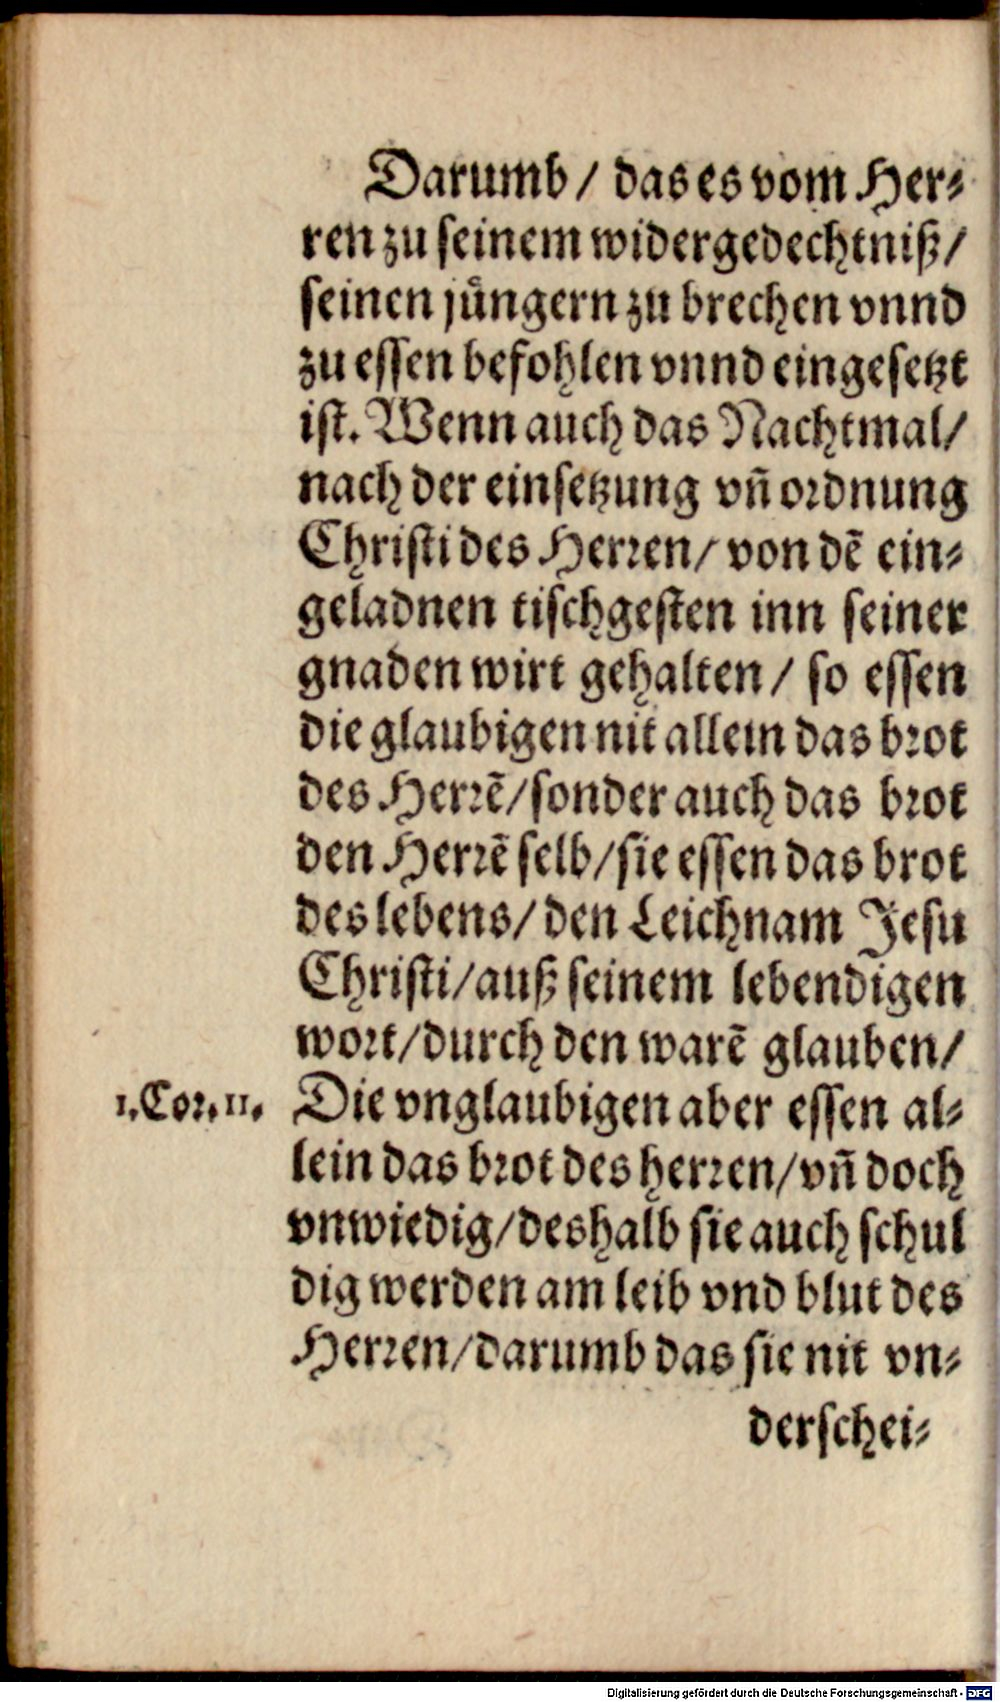 Darumb / das es vom Her⸗
ren zu seinem widergedechtniß /
seinen jüngern zu brechen vnnd
zu essen befohlen vnnd eingesetzt
ist. Wenn auch das Nachtmal /
nach der einsetzung vñ ordnung
Christi des Herren / von dē ein⸗
geladnen tischgesten inn seiner
gnaden wirt gehalten / so essen
die glaubigen nit allein das brot
des Herrē / sonder auch das brot
den Herrē selb / sie essen das brot
des lebens / den Leichnam Jesu
Christi / auß seinem lebendigen
wort / durch den warē glauben /
1. Cor. 11. Die vnglaubigen aber essen al⸗
lein das brot des herren / vñ doch
vnwiedig / deshalb sie auch schul
dig werden am leib vnd blut des
Herren / darumb das sie nit vn⸗
derschei⸗
Digitalisierung gefördert durch die Deutsche Forschungsgemeinschaft - DFG